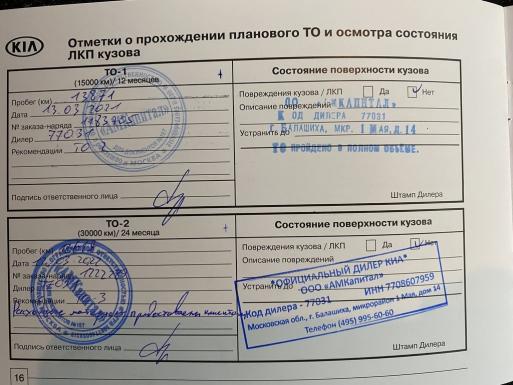 KIA
Отметки о прохождении планового ТО и осмотра состояния
ЛКП кузова
ТО-1
(15000 км)/ 12 месяцев
Пробег (км) 13871
Дата 13.03.2021
№ заказа-наряда
Дилер 77031
Рекомендации ТО 2
Подпись ответственного лица
Состояние поверхности кузова
Повреждения кузова / ЛКП Да Нет
Описание повреждений
ОО "АМКАПИТАЛ"
К ОД ДИЛЕРА 77031
Г. БАЛАШИХА, МКР. 1 МАЯ, Д.14
Устранить до
ТО ПРОЙДЕНО В ПОЛНОМ ОБЪЕМЕ.
Штамп Дилера
ТО-2
(30000 км)/ 24 месяца
Пробег (км)
Дата
№ заказа-наряда
Дилер
Рекомендации 3
Подпись ответственного лица
Состояние поверхности кузова
Повреждения кузова / ЛКП Да Нет
Описание повреждений
Устранить до
"ОФИЦИАЛЬНЫЙ ДИЛЕР КИА"
ООО «АМКапитал»
Код дилера - 77031 ИНН 7708607959
Московская обл., г. Балашиха, микрорайон 1 Мая, дом 14
Телефон (495) 995-60-60
Штамп Дилера
16